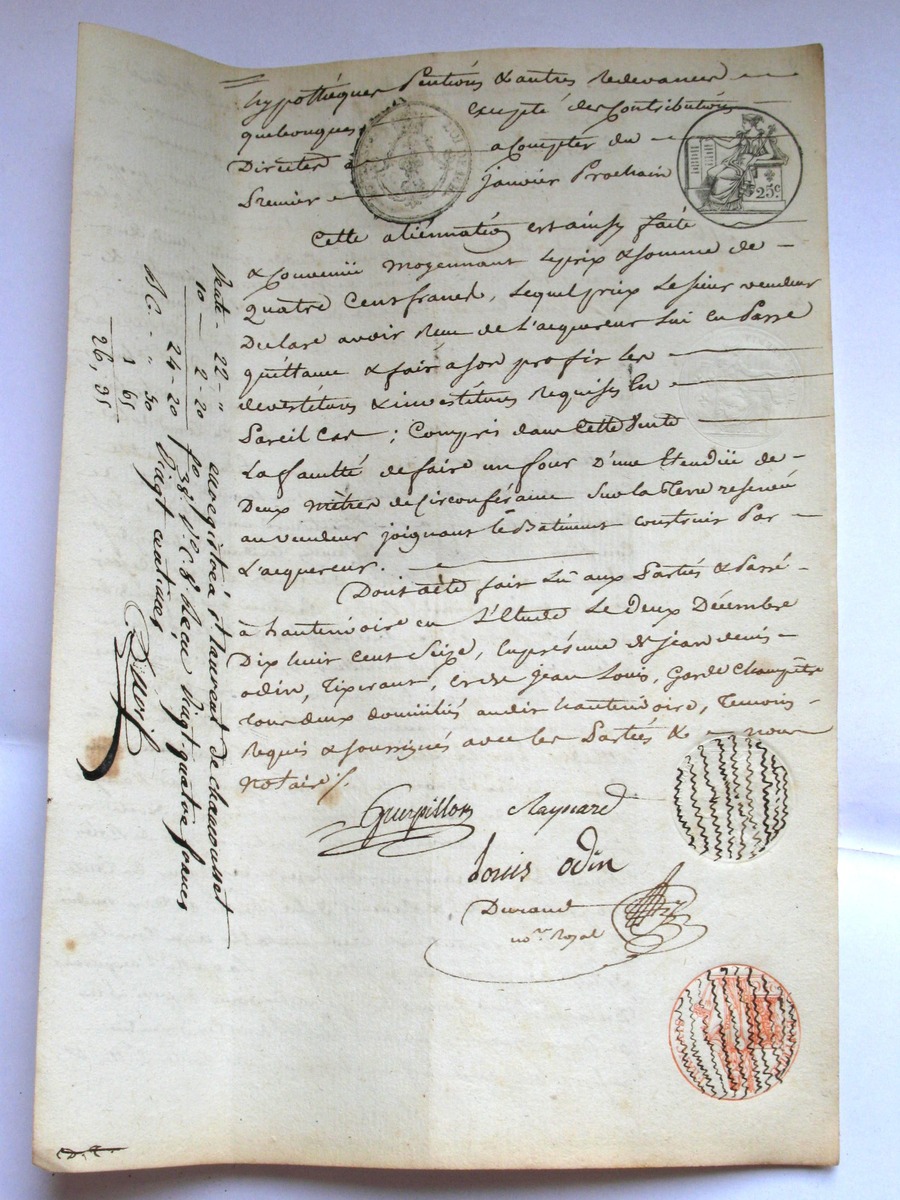 hypothéques Pentions & autres Redevances
quelconques, excepté des Contributions
Directes à compter du
Premier Janvier Prochain
25c
Cette alienation est ainsy faite
& Convenue moyennant Le prix & somme de
Quatre Cent francs, Lequel prix Le Sieur vendeur
Declare avoir Reçu de L'acquereur Lui en Passe
quittance & fait a son profit les
devestitures & investitures Requises En
Pareil Cas ; Compris dans Cette Vente
La faculté de faire un four D'une Etendüe de
Deux Mètres de Circonférance Sur la Terre reservée
au vendeur joignant le Batiment construit Par
L'acquereur.
Dont acte fait Lu aux Parties & Passé
à hauterivoire en L'Etude Le deux Décembre
Dix huit cent Seize, En présence de Jean denis
odin, Tixerant, & de Jean Louis, Garde Champêtre
tous deux domiciliés audit hauterivoire, Temoins
Requis & soussignés avec les Parties & nous
Notaire /.
Guerpillon Raynard
Louis odin
Durand
no.re Royal
Vente - 22 - "
10 - 2 - 20
24 - 20
B C. - " 90
1 65
26, 95
enregistré à st Laurent de chamousset
fo 38 vo C. 8 Reçu vingt quatre francs
vingt centimes